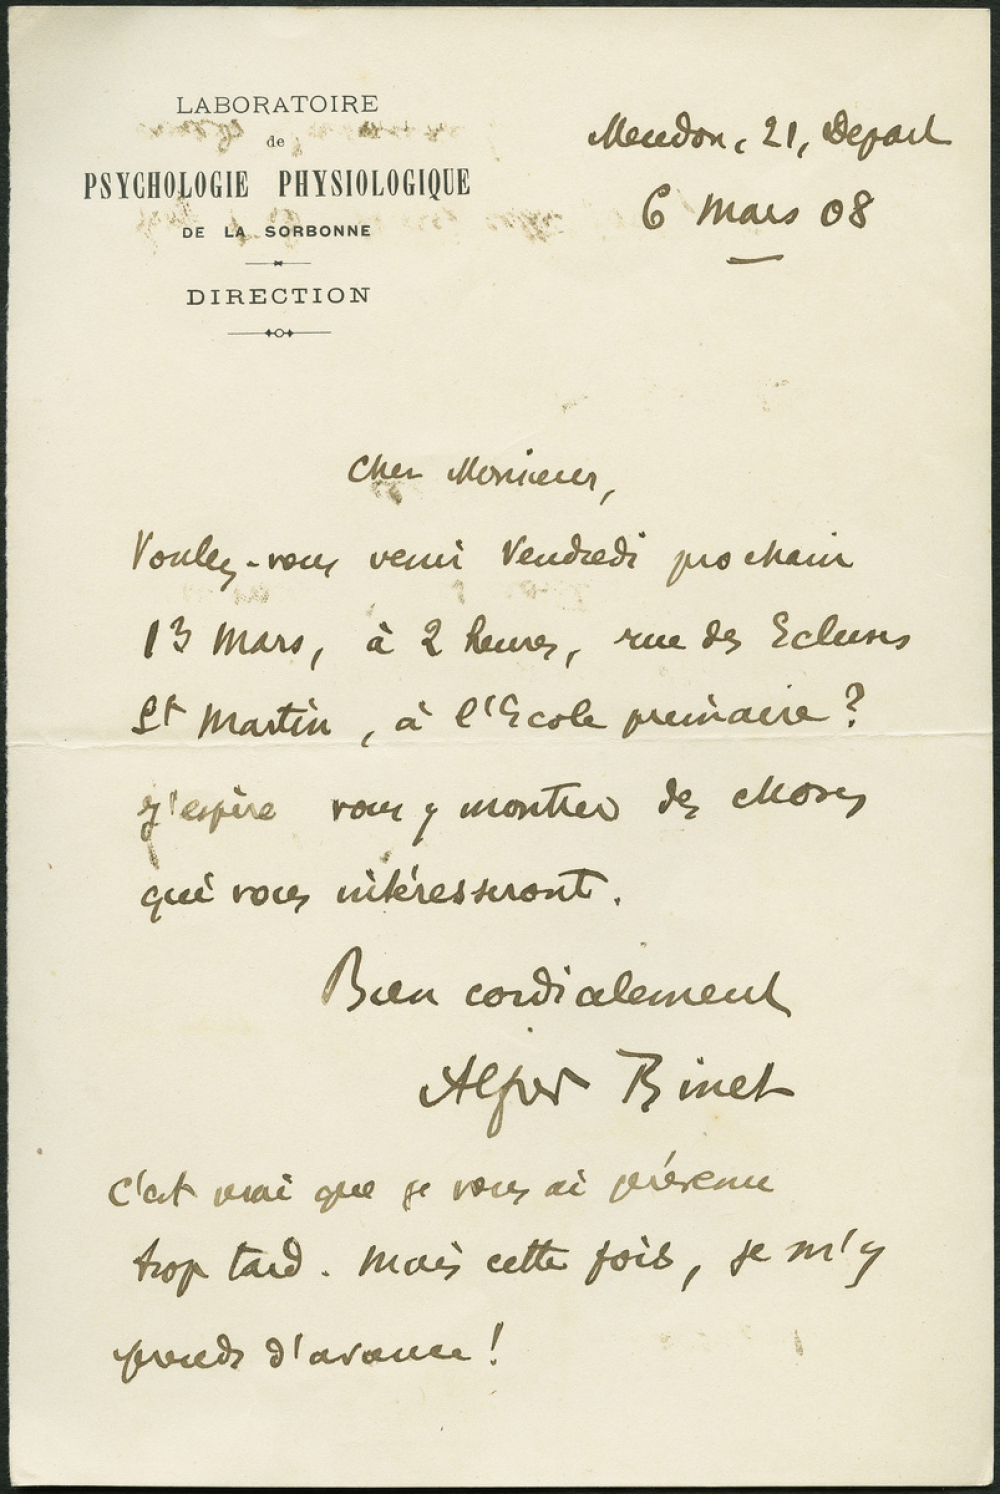 LABORATOIRE
de
PSYCHOLOGIE PHYSIOLOGIQUE
DE LA SORBONNE
DIRECTION
Meudon, 21, Depart
6 Mars 08
Cher Monsieur,
Voulez-vous venir Vendredi prochain
13 Mars, à 2 heures, rue des Ecluses
St Martin, à l'Ecole primaire?
J'espère vous y montrer des choses
qui vous intéresseront.
Bien cordialement
Alfred Binet
C'est vrai que je vous ai prévenu
trop tard. Mais cette fois, je m'y
prends d'avance!